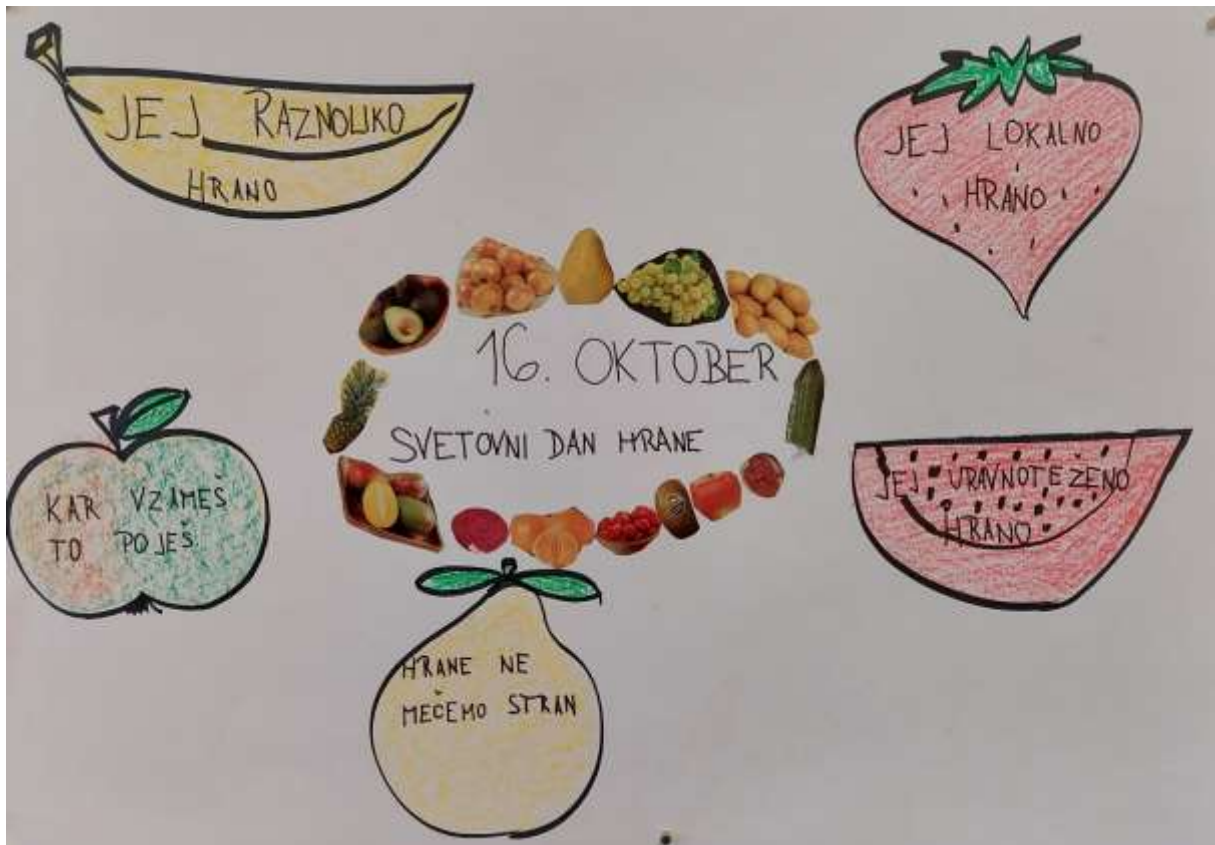 JEJ RAZNOLIKO
HRANO
JEJ LOKALNO
HRANO
16. OKTOBER
SVETOVNI DAN HRANE
KAR VZAMEŠ
TO POJEŠ.
JEJ URAVNOTEZENO
HRANO
HRANE NE
MEČEMO STRAN